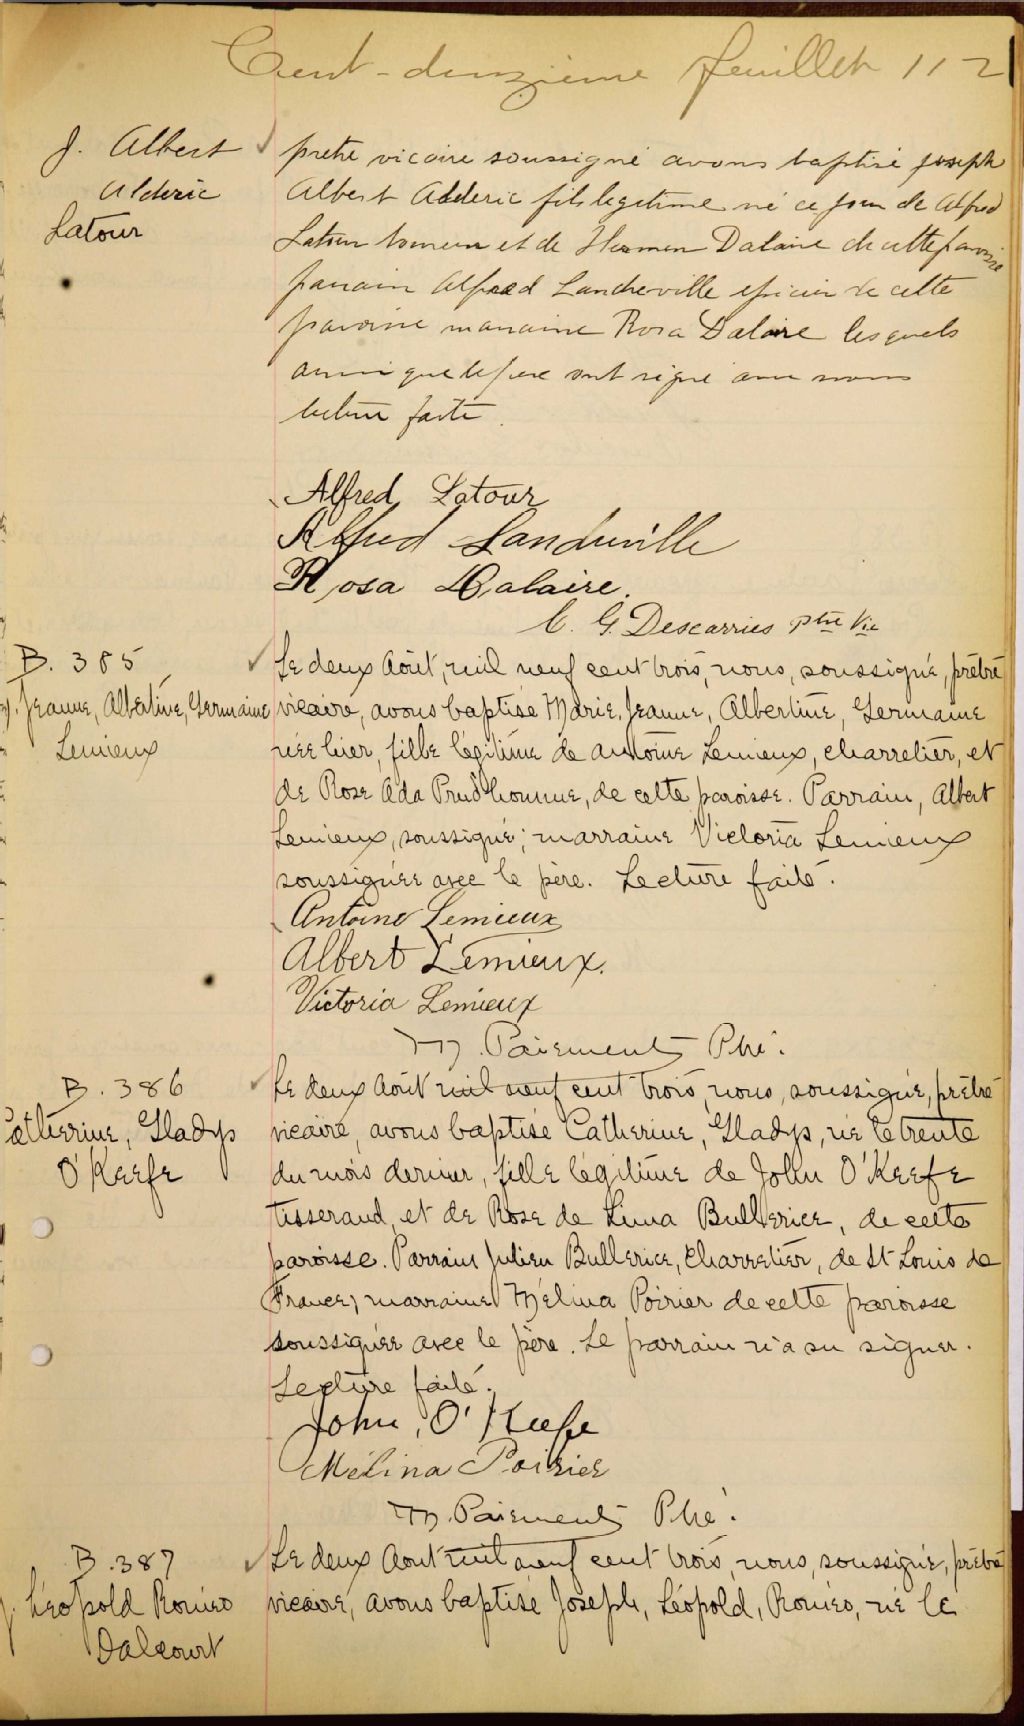 Cent-douzième feuillet 112
J. Albert
Alderic
Latour
pretre vicaire soussigné avons baptisé Joseph
Albert Alderic fils legitime né ce jour de Alfred
Latour et de Dalaire de cette paroisse
parrain Alfred Landreville epicier de cette
paroisse marraine Rosa Dalaire lesquels
ainsi que le pere ont signé avec nous
lecture faite.
Alfred Latour
Alfred Landreville
Rosa Dalaire.
C. G. Descarries ptre Vic
B. 385
J. Jeanne, Albertine, Germaine
Lemieux
Le deux Août, mil neuf cent trois, nous, soussigné, prêtre
vicaire, avons baptisé Marie, Jeanne, Albertine, Germaine
née hier, fille légitime de Antoine Lemieux, charretier, et
de Rose Ada Prudhomme, de cette paroisse. Parrain, Albert
Lemieux, soussigné; marraine Victoria Lemieux
soussignée avec le père. Lecture faite.
Antoine Lemieux
Albert Lemieux.
Victoria Lemieux
M. Paiement Ptre.
B. 386
Catherine, Gladys
O'Keefe
Le deux Août mil neuf cent trois, nous, soussigné, prêtre
vicaire, avons baptisé Catherine, Gladys, née le trente
du mois dernier, fille légitime de John O'Keefe
tisserand, et de Rose de Lima Bullerice, de cette
paroisse. Parrain Julien Bullerice, charretier, de St Louis de
France; marraine Mélina Poirier de cette paroisse
soussignée avec le père. Le parrain n'a su signer.
Lecture faite.
John O'Keefe
Mélina Poirier
M. Paiement Ptre.
B. 387
J. Léopold Roméo
Dalcourt
Le deux Août mil neuf cent trois, nous, soussigné, prêtre
vicaire, avons baptisé Joseph, Léopold, Roméo, né le